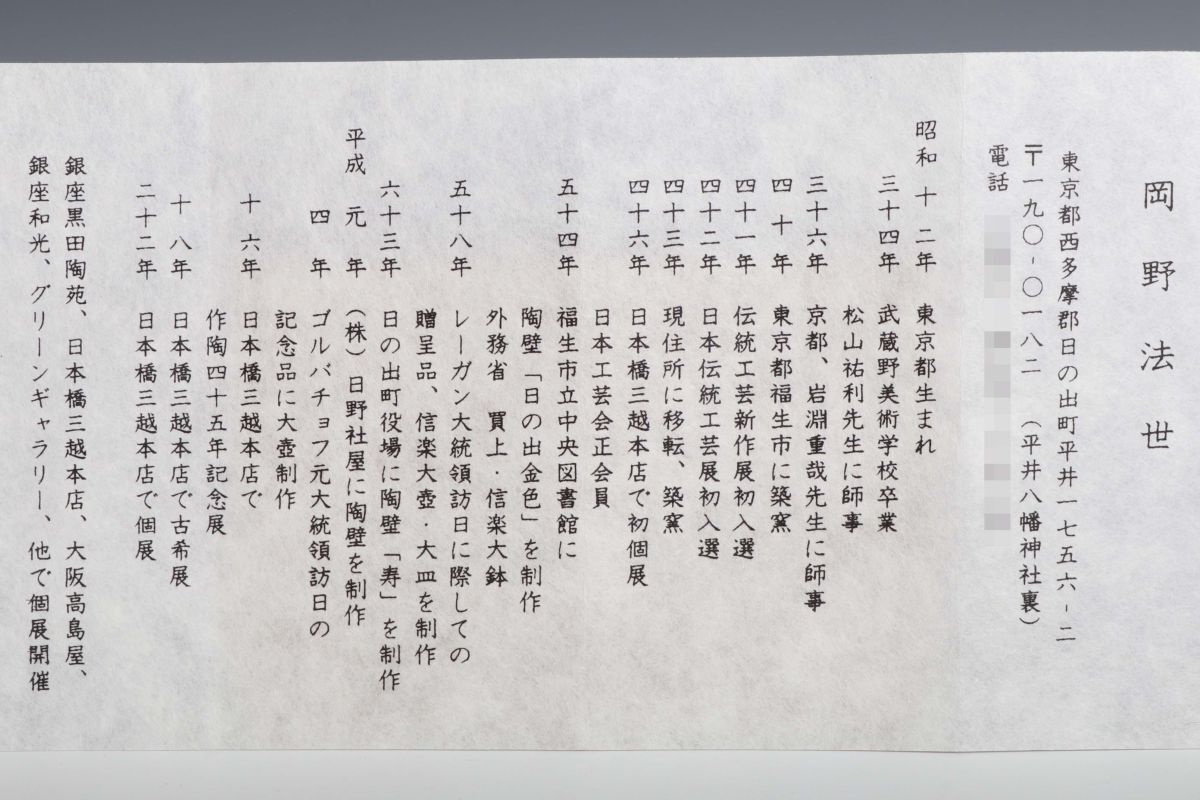 岡野法世
東京都西多摩郡日の出町平井一七五六-二
〒一九〇-〇一八二 (平井八幡神社裏)
電話
昭和 十 二年 東京都生まれ
三十四年 武蔵野美術学校卒業
松山祐利先生に師事
三十六年 京都、岩淵重哉先生に師事
四 十 年 東京都福生市に築窯
四十一年 伝統工芸新作展初入選
四十二年 日本伝統工芸展初入選
四十三年 現住所に移転、築窯
四十六年 日本橋三越本店で初個展
日本工芸会正会員
五十四年 福生市立中央図書館に
陶壁「日の出金色」を制作
外務省 買上・信楽大鉢
五十八年 レーガン大統領訪日に際しての
贈呈品、信楽大壺・大皿を制作
六十三年 日の出町役場に陶壁「寿」を制作
平成 元 年 (株)日野社屋に陶壁を制作
四 年 ゴルバチョフ元大統領訪日の
記念品に大壺制作
十 六年 日本橋三越本店で
作陶四十五年記念展
十 八年 日本橋三越本店で古希展
二十二年 日本橋三越本店で個展
銀座黒田陶苑、日本橋三越本店、大阪高島屋、
銀座和光、グリーンギャラリー、他で個展開催